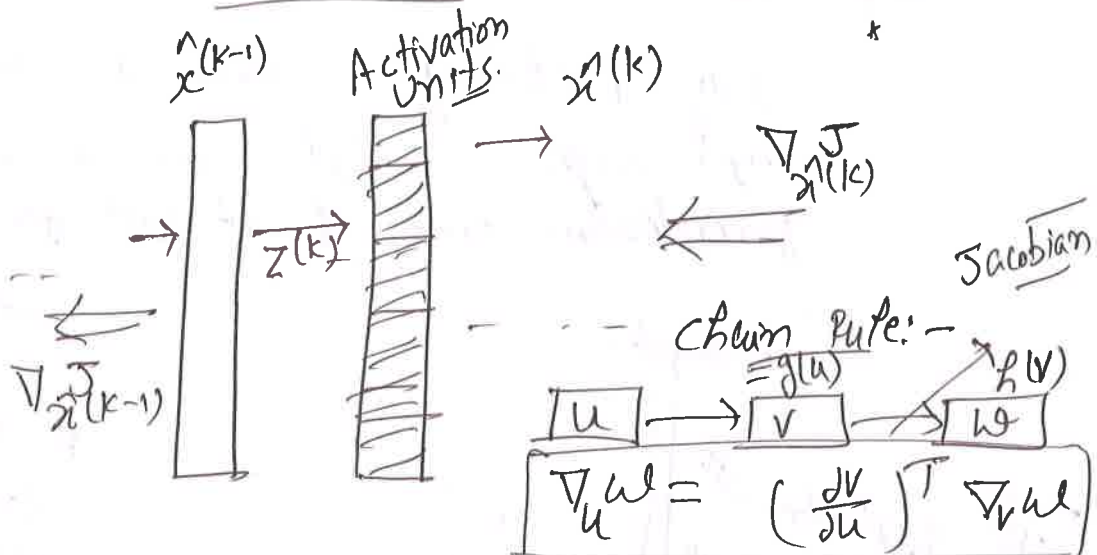 x̂^(k-1)
Activation
units.
x̂^(k)
*
∇_x̂^(k) J
z^(k)
Jacobian
∇_x̂^(k-1) J
Chain Rule:-
u
= g(u)
v
h(v)
w
∇_u w = (∂v/∂u)^T ∇_v w